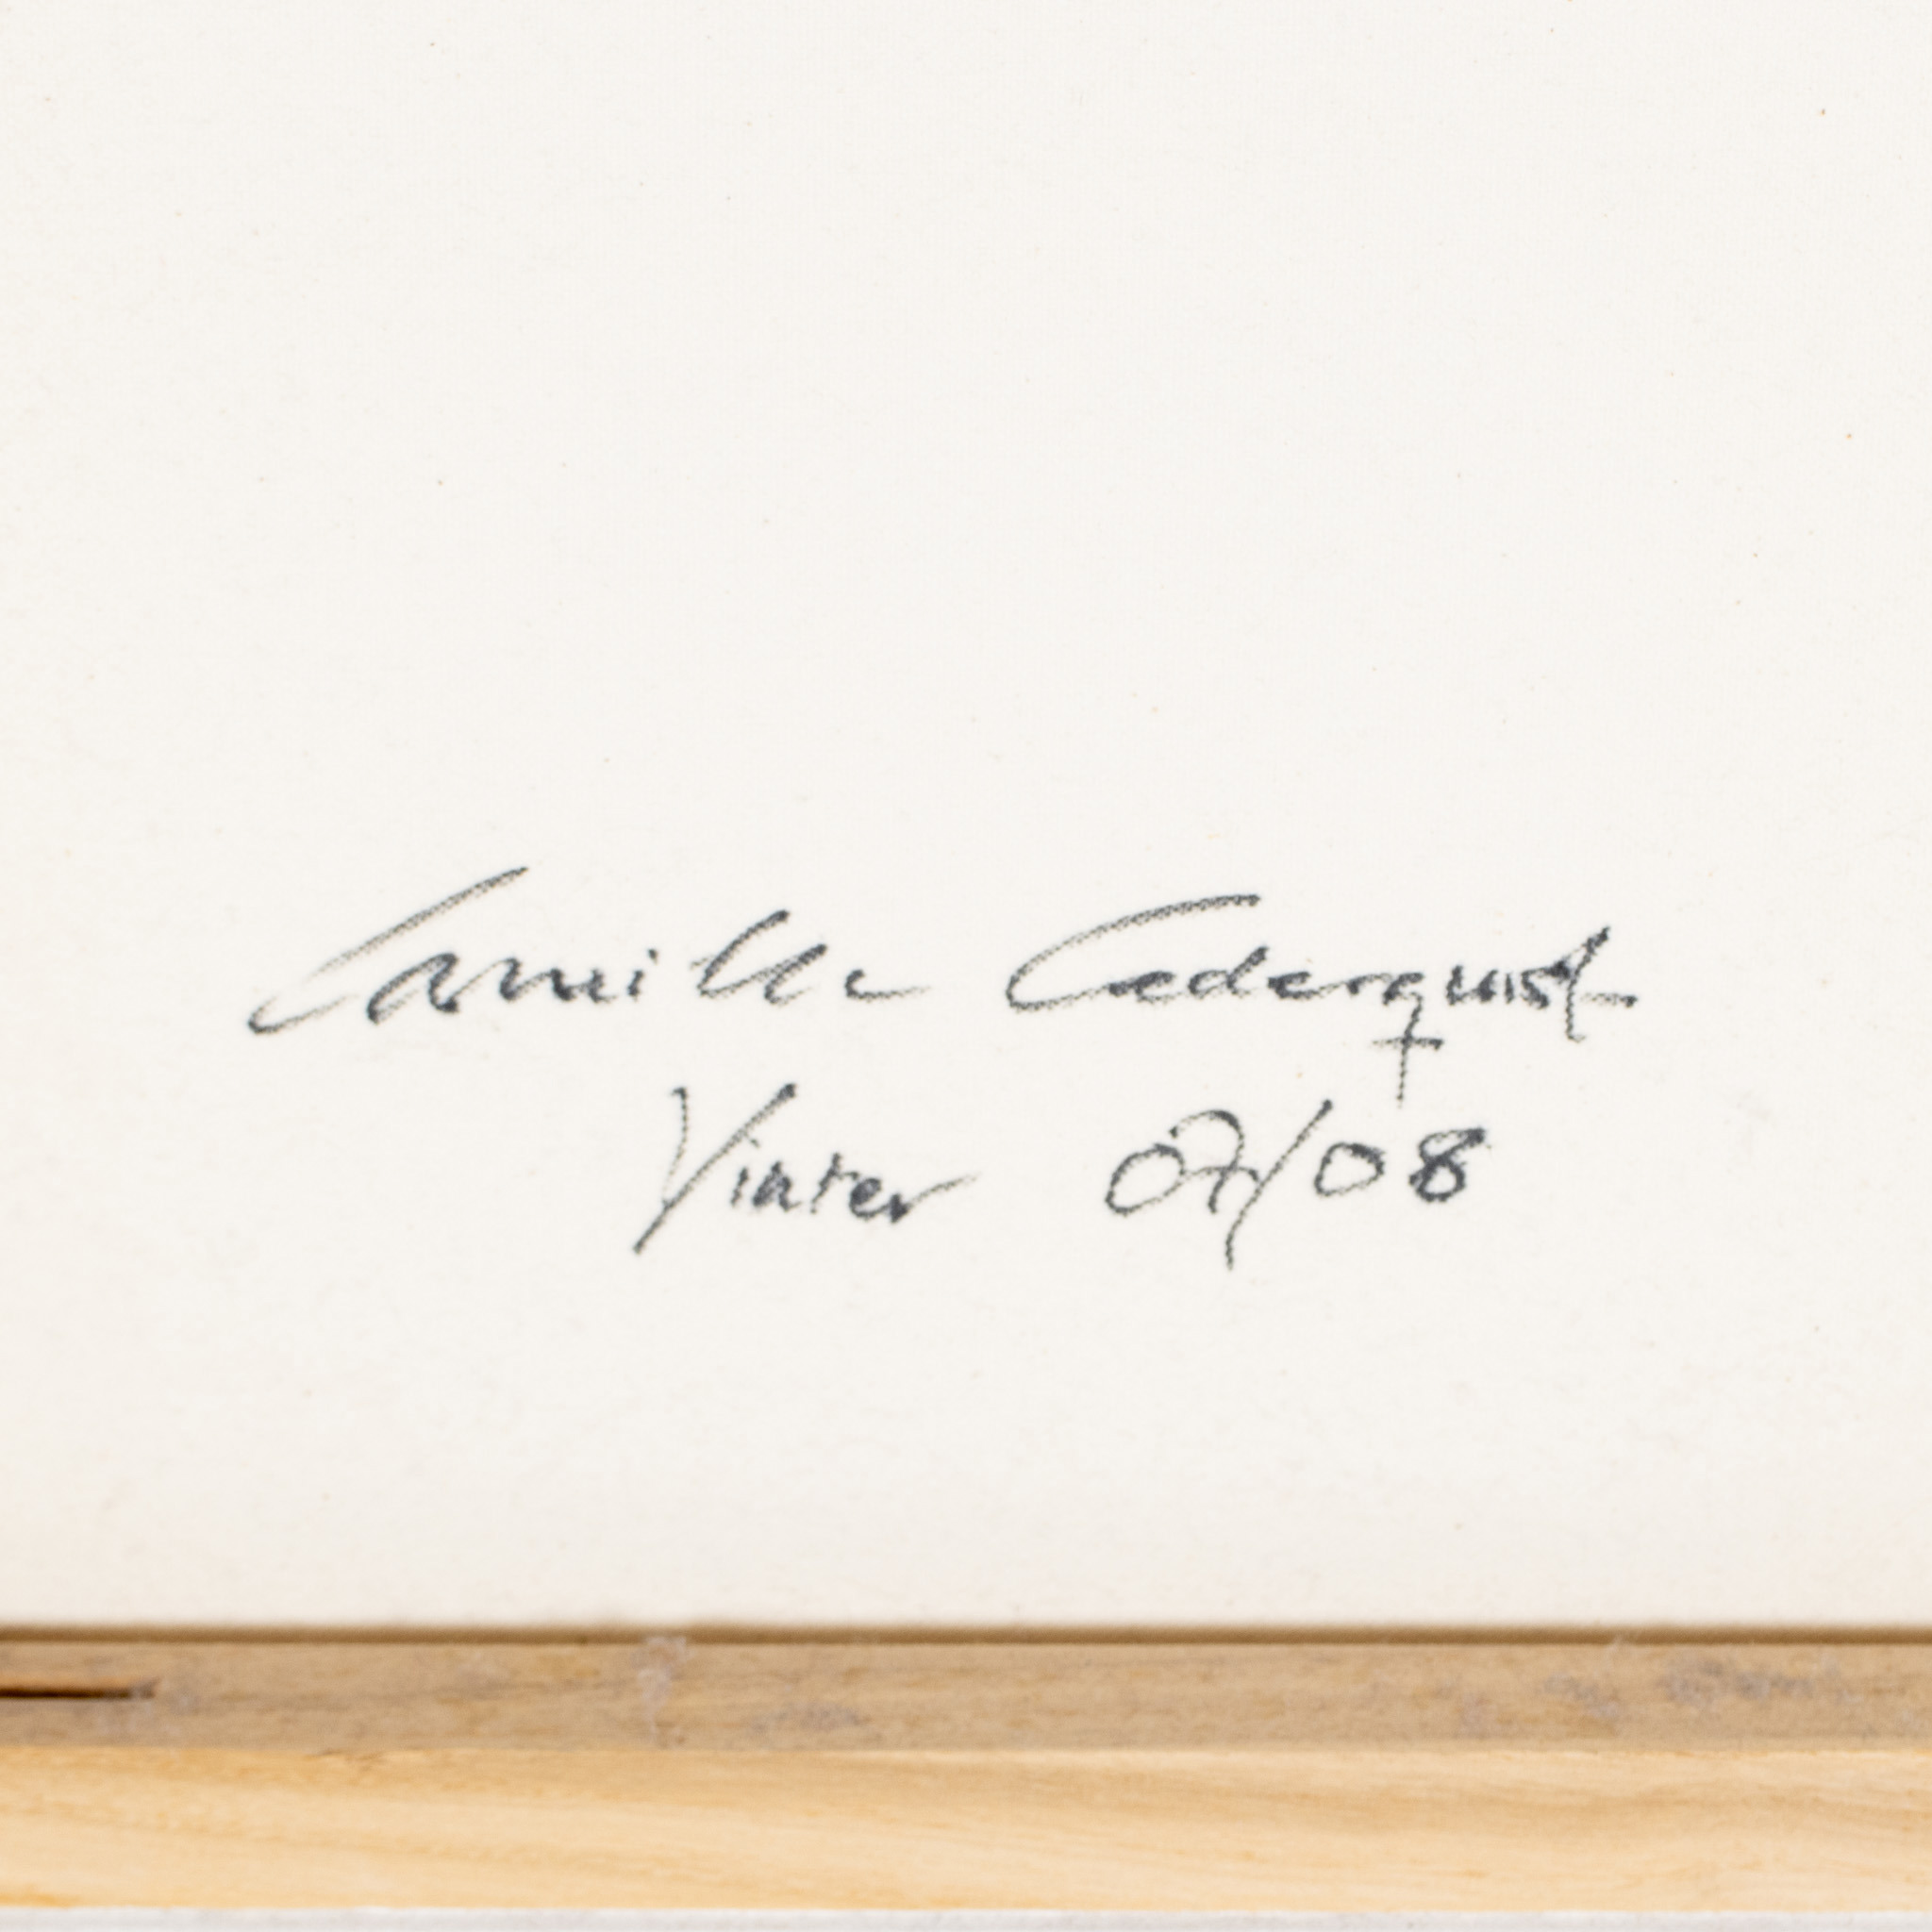 Camilla Cederquist
Vinter 07/08